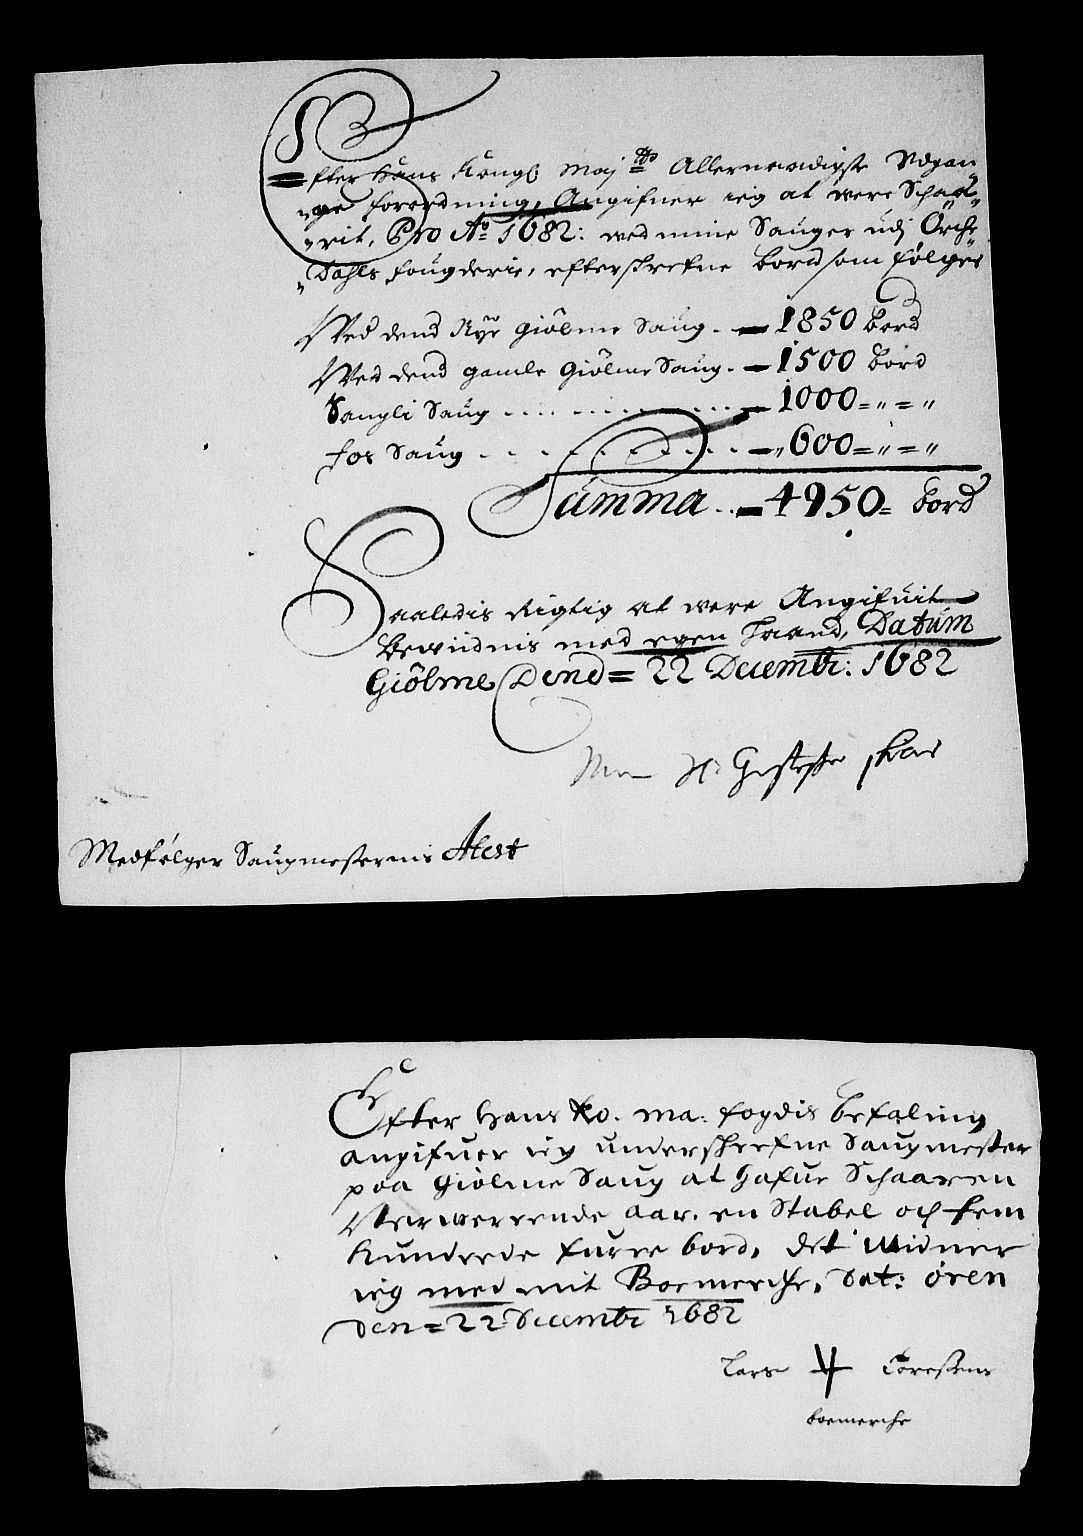 Efter Hans Kongl: Maj:tts Allernaadigste Udgan
„ge forordning, Angifuer ieg at were Schaa„
„rit, Pro Ao 1682: wed mine Sauger udj Orche
„Dahls fougderie, efterskrefne bord som følger
Wed dend Nye Giölme Saug. — 1850 Bord
Wed dend gamle Giölme Saug. — 1500 Bord
Sangli Saug ............ — 1000 = „ = „
Fos Saug ............ — „600 = „ = „
Summa .. — 4950 = Bord
Saaledis Rigtig at were Angifuit
Bewiidnis med egen Haand, Datum
Giölme Dend = 22 Decembr: 1682
H:
Medfølger Saugmesterens Atest
Efter Hans Ko. Ma: fogdis befaling
angifuer ieg underskrefne Saugmester
paa Giölme Saug at hafue Schaaren
Nerwerende aar. en Stabel och fem
hunderde furre bord, det widner
ieg med mit Boemerche, Dat: Øren
den = 22 Decembr 1682
Lars Toressens
boemerche